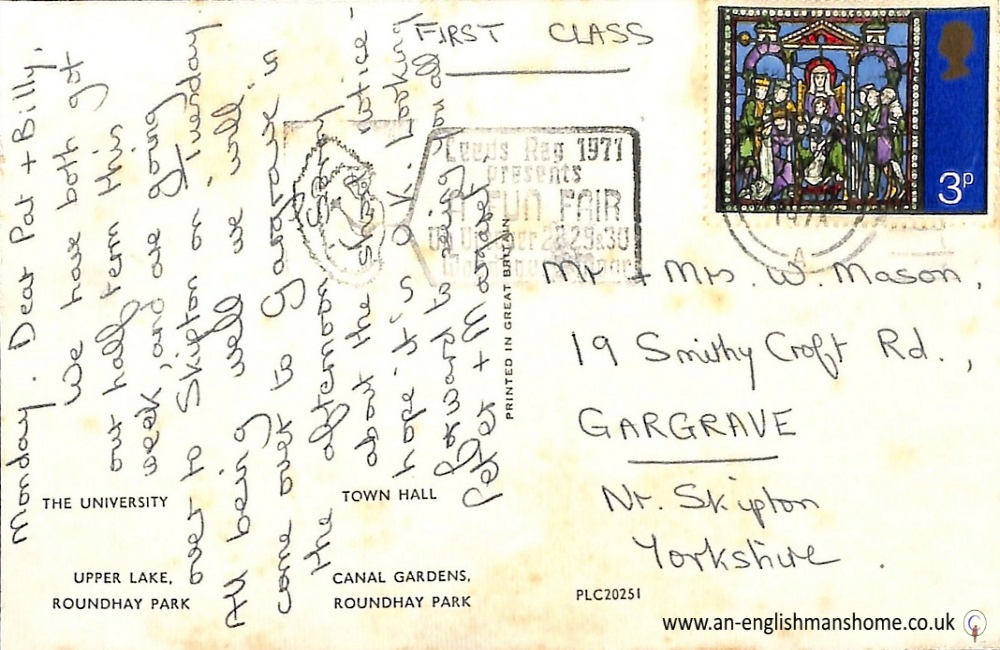 Monday. Dear Pat + Billy,
We have both got
our half term this
week, and are going
over to Skipton on Tuesday.
All being well we will
come over to Gargrave in
the afternoon. Sorry
about the short notice -
hope it's O.K. Looking
forward to seeing you all
Peter + Margaret
FIRST CLASS
Leeds Rag 1971
presents
A FUN FAIR
28 29 & 30
3P
1971
Mr + Mrs. W. Mason,
19 Smithy Croft Rd.,
GARGRAVE
Nr. Skipton
Yorkshire.
PRINTED IN GREAT BRITAIN
THE UNIVERSITY
TOWN HALL
UPPER LAKE,
ROUNDHAY PARK
CANAL GARDENS,
ROUNDHAY PARK
PLC20251
www.an-englishmanshome.co.uk ©